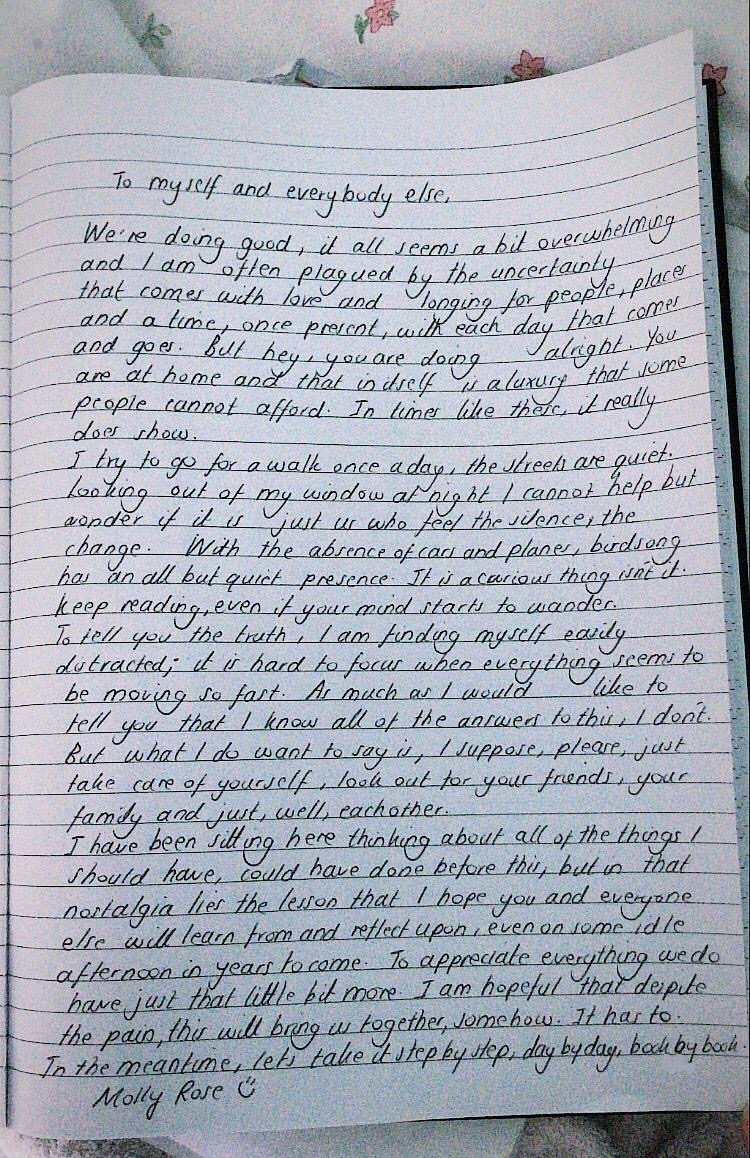 To myself and everybody else,
We're doing good, it all seems a bit overwhelming
and I am often plagued by the uncertainty
that comes with love and longing for people, places
and a time, once present, with each day that comes
and goes. But hey, you are doing alright. You
are at home and that in itself is a luxury that some
people cannot afford. In times like these, it really
does show.
I try to go for a walk once a day, the streets are quiet.
Looking out of my window at night I cannot help but
wonder if it is just us who feel the silence, the
change. With the absence of cars and planes, birdsong
has an all but quiet presence. It is a curious thing isn't it.
Keep reading, even if your mind starts to wander.
To tell you the truth, I am finding myself easily
distracted; it is hard to focus when everything seems to
be moving so fast. As much as I would like to
tell you that I know all of the answers to this, I don't.
But what I do want to say is, I suppose, please, just
take care of yourself, look out for your friends, your
family and just, well, eachother.
I have been sitting here thinking about all of the things I
should have, could have done before this, but in that
nostalgia lies the lesson that I hope you and everyone
else will learn from and reflect upon, even on some idle
afternoon in years to come. To appreciate everything we do
have just that little bit more. I am hopeful that despite
the pain, this will bring us together, somehow. It has to.
In the meantime, lets take it step by step, day by day, book by book.
Molly Rose ☺